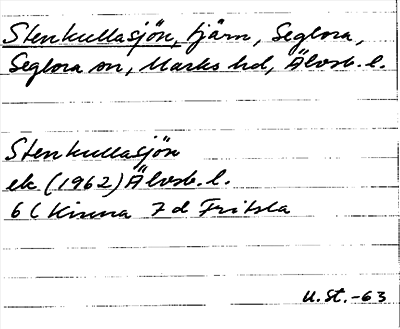 Stenkullasjön, tjärn, Seglora,
Seglora sn, Marks hd, Älvsb. l.
Stenkullasjön
ek (1962) Älvsb. l.
6 C Kinna 7 d Fritsla
U. St. -63